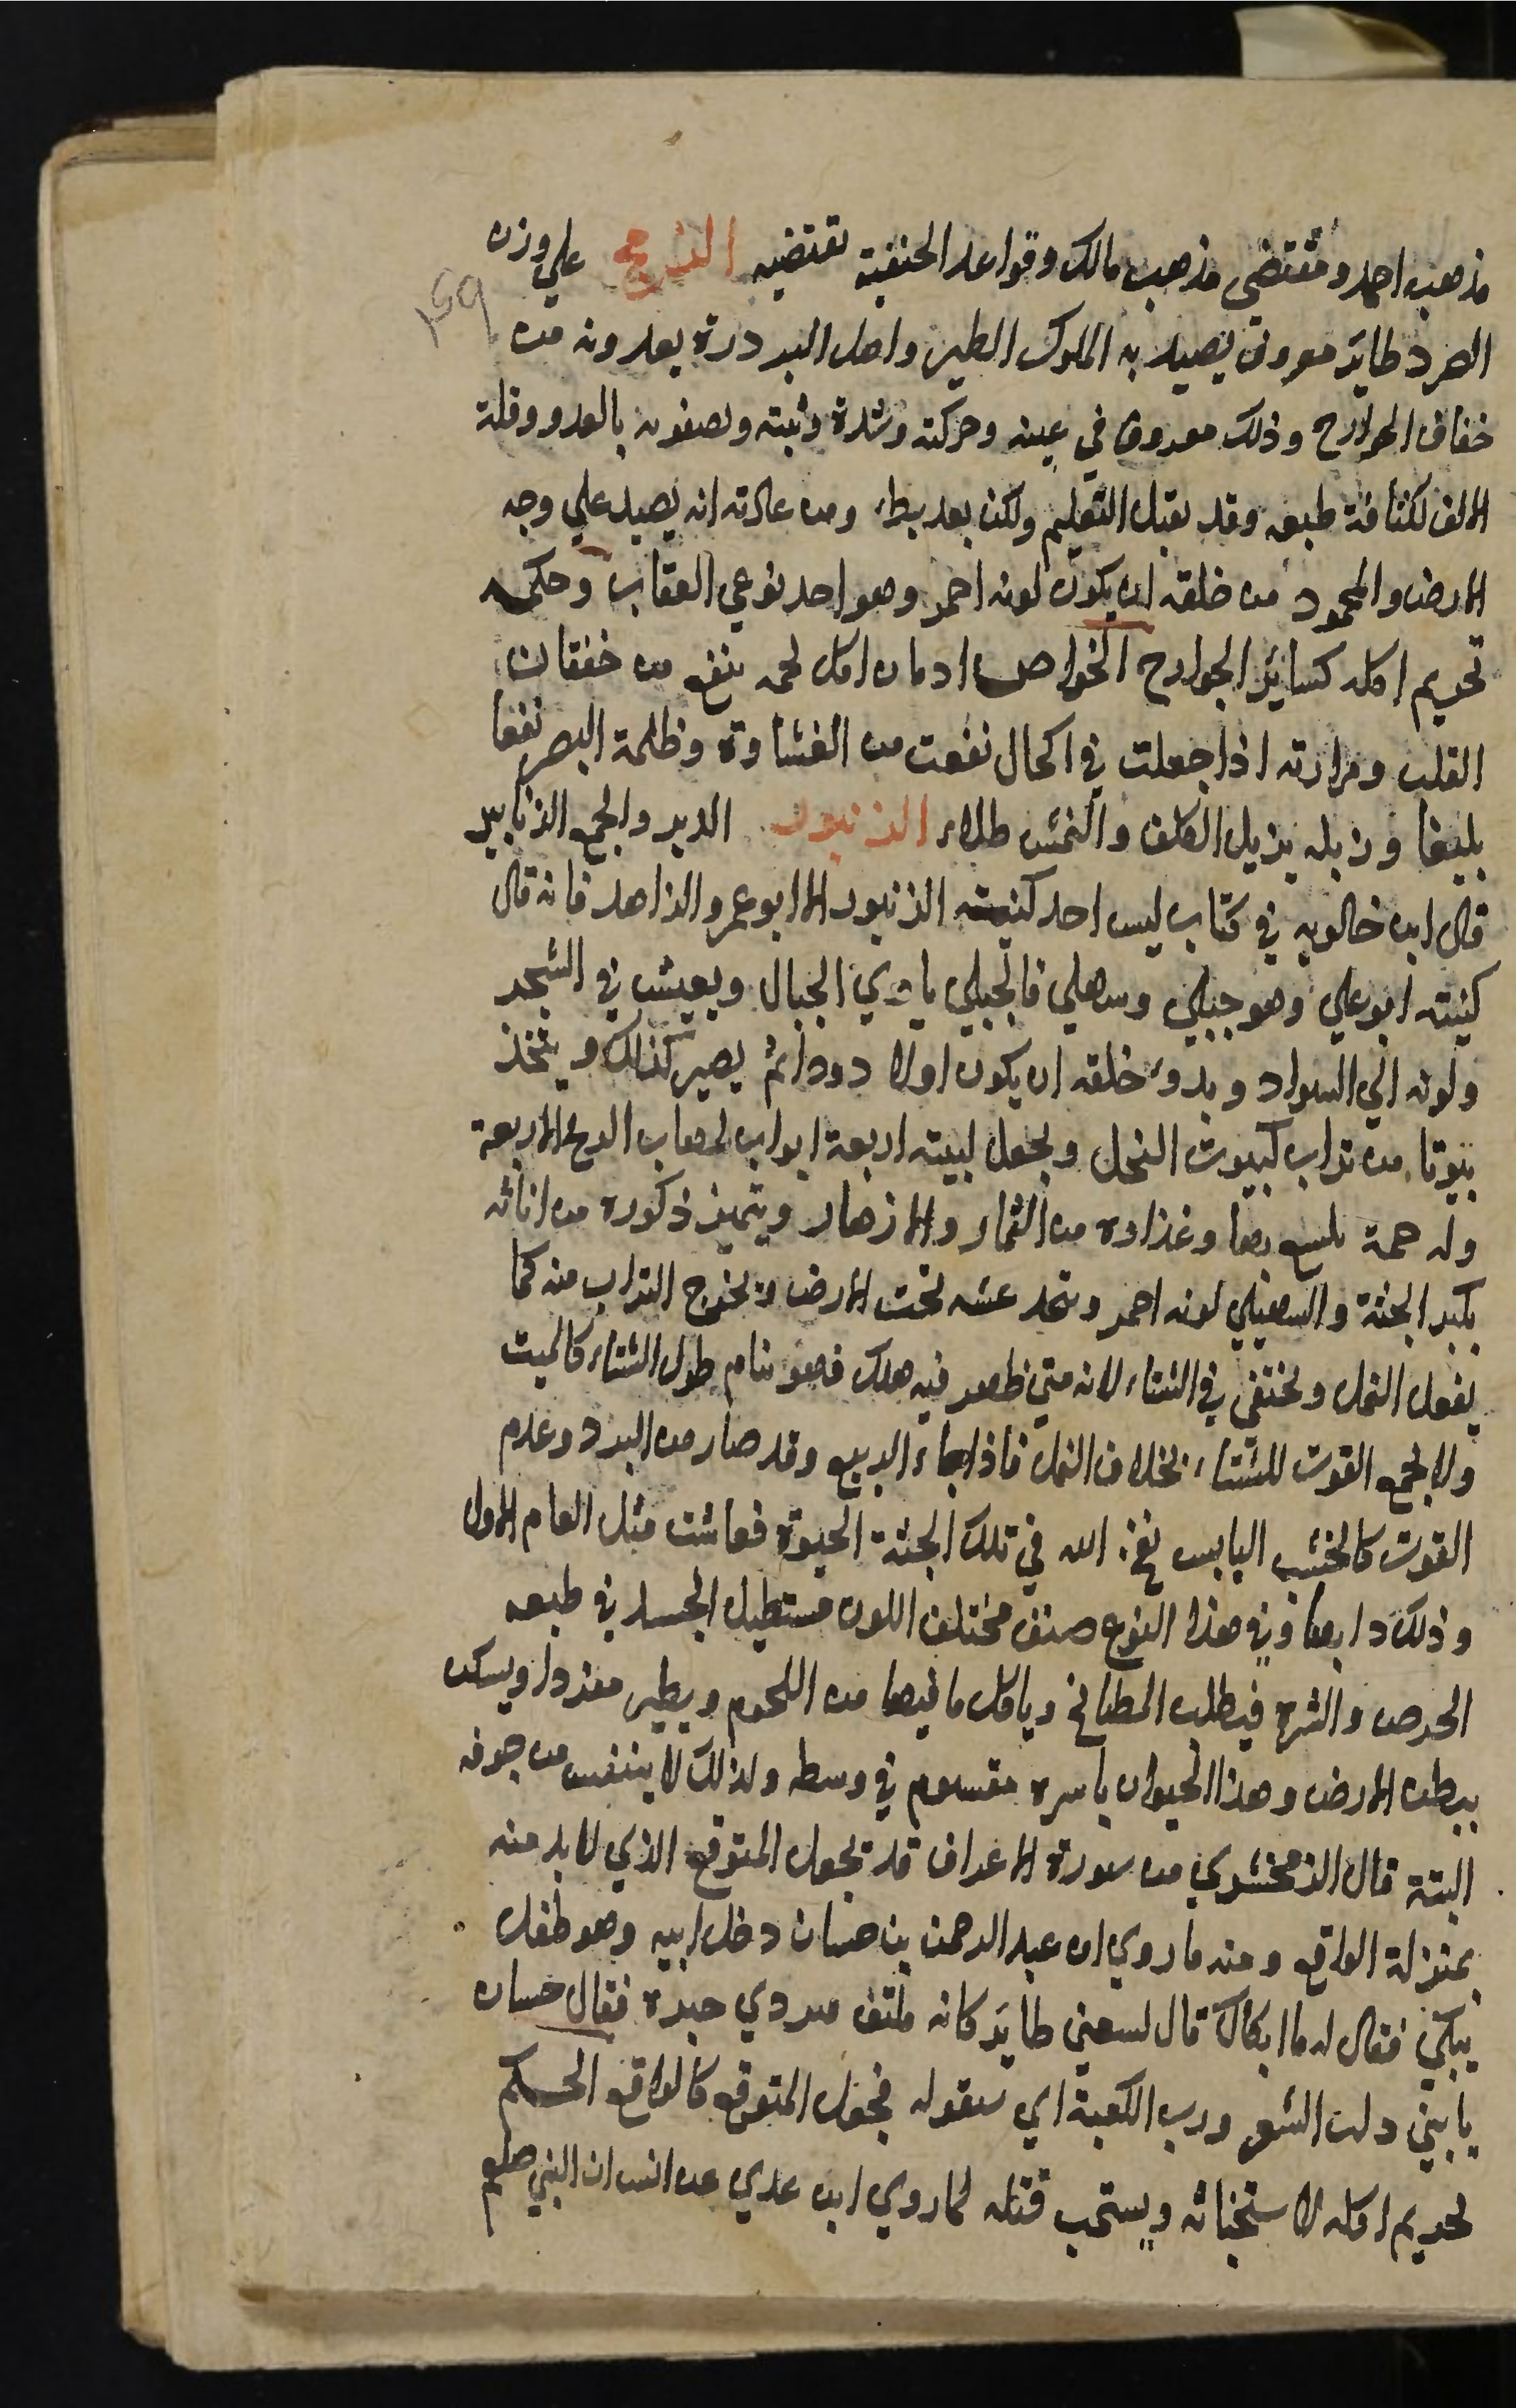 مذهب احمد ومقتضى مذهب مالك وقواعد الحنفية تقتضيه الزمج على وزن
159
الصرد طاير معروف يصيد به الملوك الطير واهل البزدرة يعدونه من
خفاف الجوارح وذلك معروف في عينه وحركته وشدة وثبته ويصفونه بالغدر وقلة
الالف لكثافة طبعه وقد يقبل التعليم ولكن بعد بطء ومن عادته انه يصيد على وجه
الارض والمحمود من خلقه ان يكون لونه احمر وهو احد نوعي العقاب وحكمه
تحريم اكله كسائر الجوارح الخواص ادمان اكل لحمه ينفع من خفقان
القلب ومرارته اذا جعلت في اكحال نفعت من الغشاوة وظلمة البصر نفعا
بليغا وزبله يزيل الكلف والنمش طلاء الزنبور الدبر والجمع الزنابير
قال ابن خالويه في كتاب ليس احد كنيته الزنبور الا ابو عمرو الزاهد فانه قال
كنيته ابو علي وهو جبلي وسهلي فالجبلي ياوي الجبال ويعيش في الشجر
ولونه الي السواد وبدو خلقه ان يكون اولا دودا ثم يصير كذلك ويتخذ
بيوتا من تراب كبيوت النحل ويجعل لبيته اربعة ابواب لمهاب الريح الاربعة
وله حمة يلسع بها وغذاوه من الثمار والازهار ويتميز ذكوره من اناثه
بكبر الجثة والسهيلي لونه احمر ويتخذ عشه تحت الارض ويخرج التراب منه كما
يفعل النمل ويختفي في الشتاء لانه متي ظهر فيه هلك فهو ينام طول الشتاء كالميت
ولا يجمع القوت للشتاء بخلاف النمل فاذا جاء الربيع وقد صار من البرد وعدم
القوت كالخشب اليابس نفخ الله في تلك الجثة الحيوة فعاشت مثل العام الاول
وذلك دابها وفي هذا النوع صنف مختلف اللون مستطيل الجسد في طبعه
الحرص والشره فيطلب المطابخ وياكل ما فيها من اللحوم ويطير مفردا ويسكن
ببطن الارض وهذا الحيوان باسره مقسوم في وسطه ولذلك لا يتنفس من جوفه
البتة قال الزمخشري من سورة الاعراف قد يجعل المتوقع الذي لا بد منه
بمنزلة الواقع ومنه ما روي ان عبد الرحمن بن حسان دخل ابيه وهو طفل
يبكي فقال له ما ابكاك قال لسعني طاير كانه ملتف ببردي حبرة فقال حسان
يا بني دلت الشعر ورب الكعبة اي ستقوله فجعل المتوقع كالواقع الحكم
تحريم اكله لاستخباثه ويستحب قتله لما روي ابن عدي عن انس ان النبي صلعم